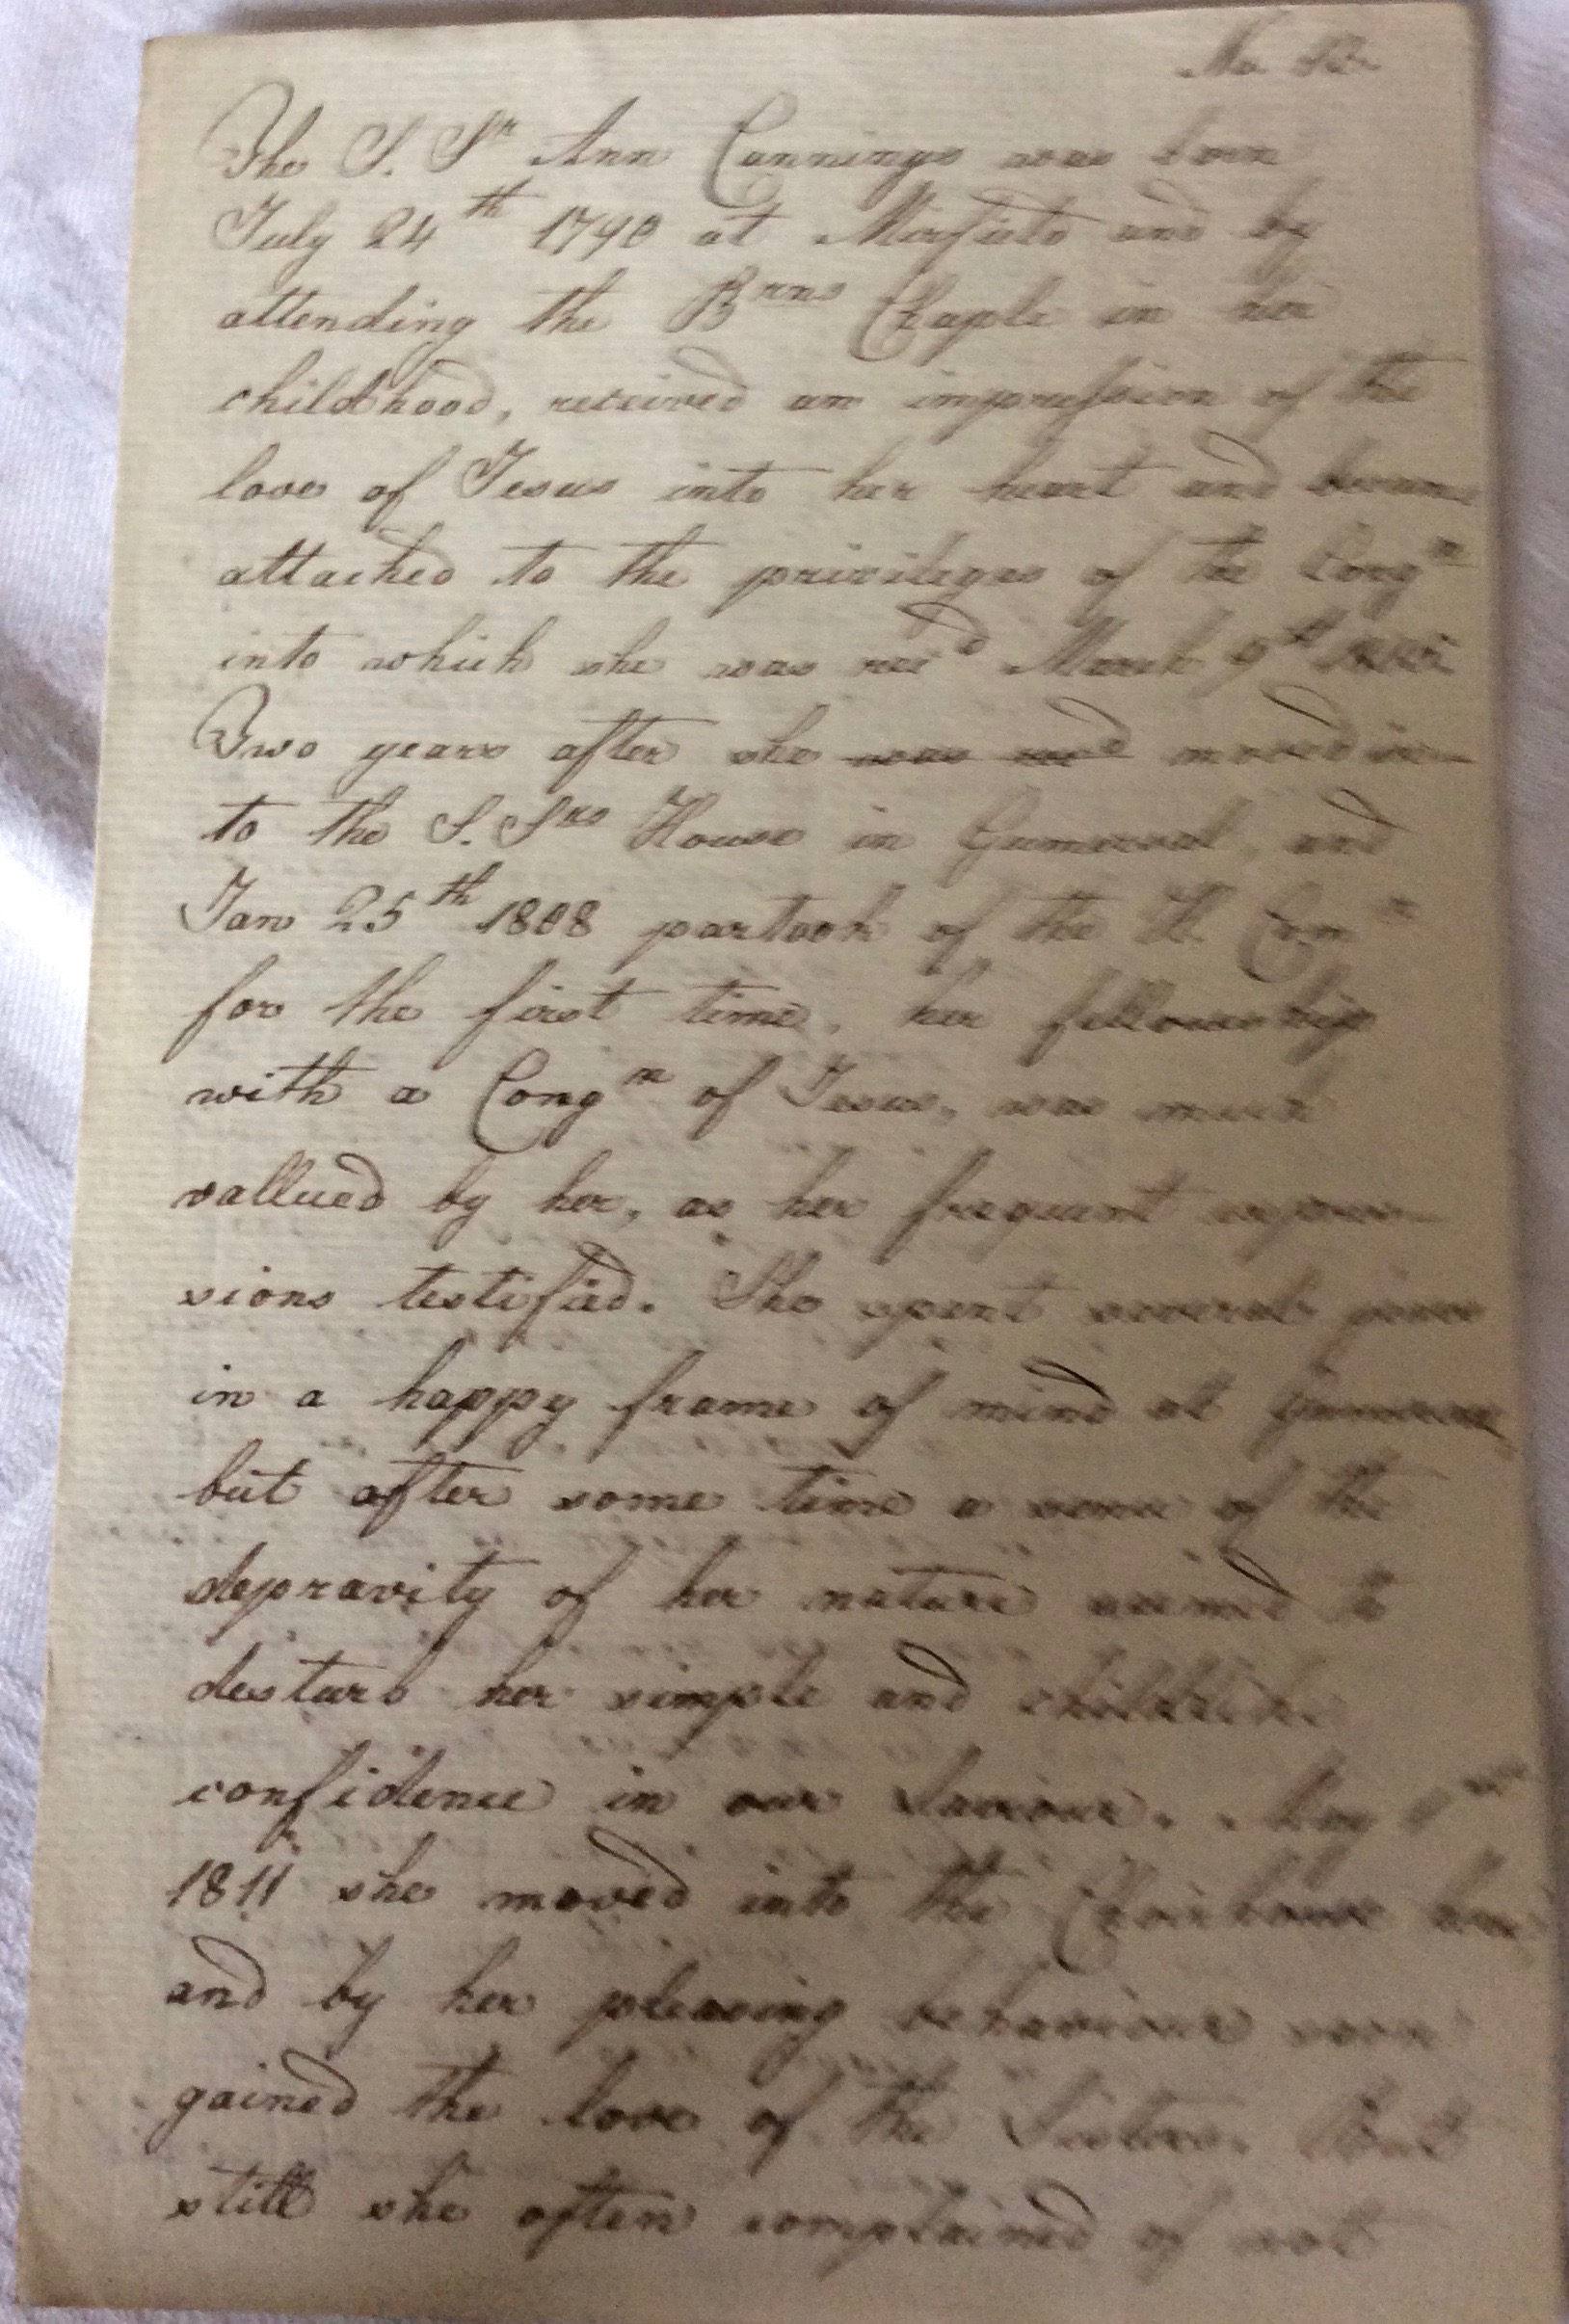 No.
The S. Sr Ann Cunnings was born
July 24th 1790 at Mirfield and by
attending the Brns Chaple in her
childhood, received an impression of the
love of Jesus into her heart and became
attached to the privileges of the Congn
into which she was recd March 9th
Two years after she was recd moved in-
to the S. Srs House in Gumersal, and
Jan 25th 1808 partook of the H. Comn
for the first time. her fellowship
with a Congn of Jesus, was much
vallued by her, as her frequent expres-
sions testified. She spent several years
in a happy frame of mind at Gumersal
but after some time a sense of the
depravity of her nature seemed to
desturb her simple and childlike
confidence in our Saviour. May
1811 she moved into the Choirhouse here
and by her pleasing behaviour soon
gained the love of the Sisters. But
still she often complained of not